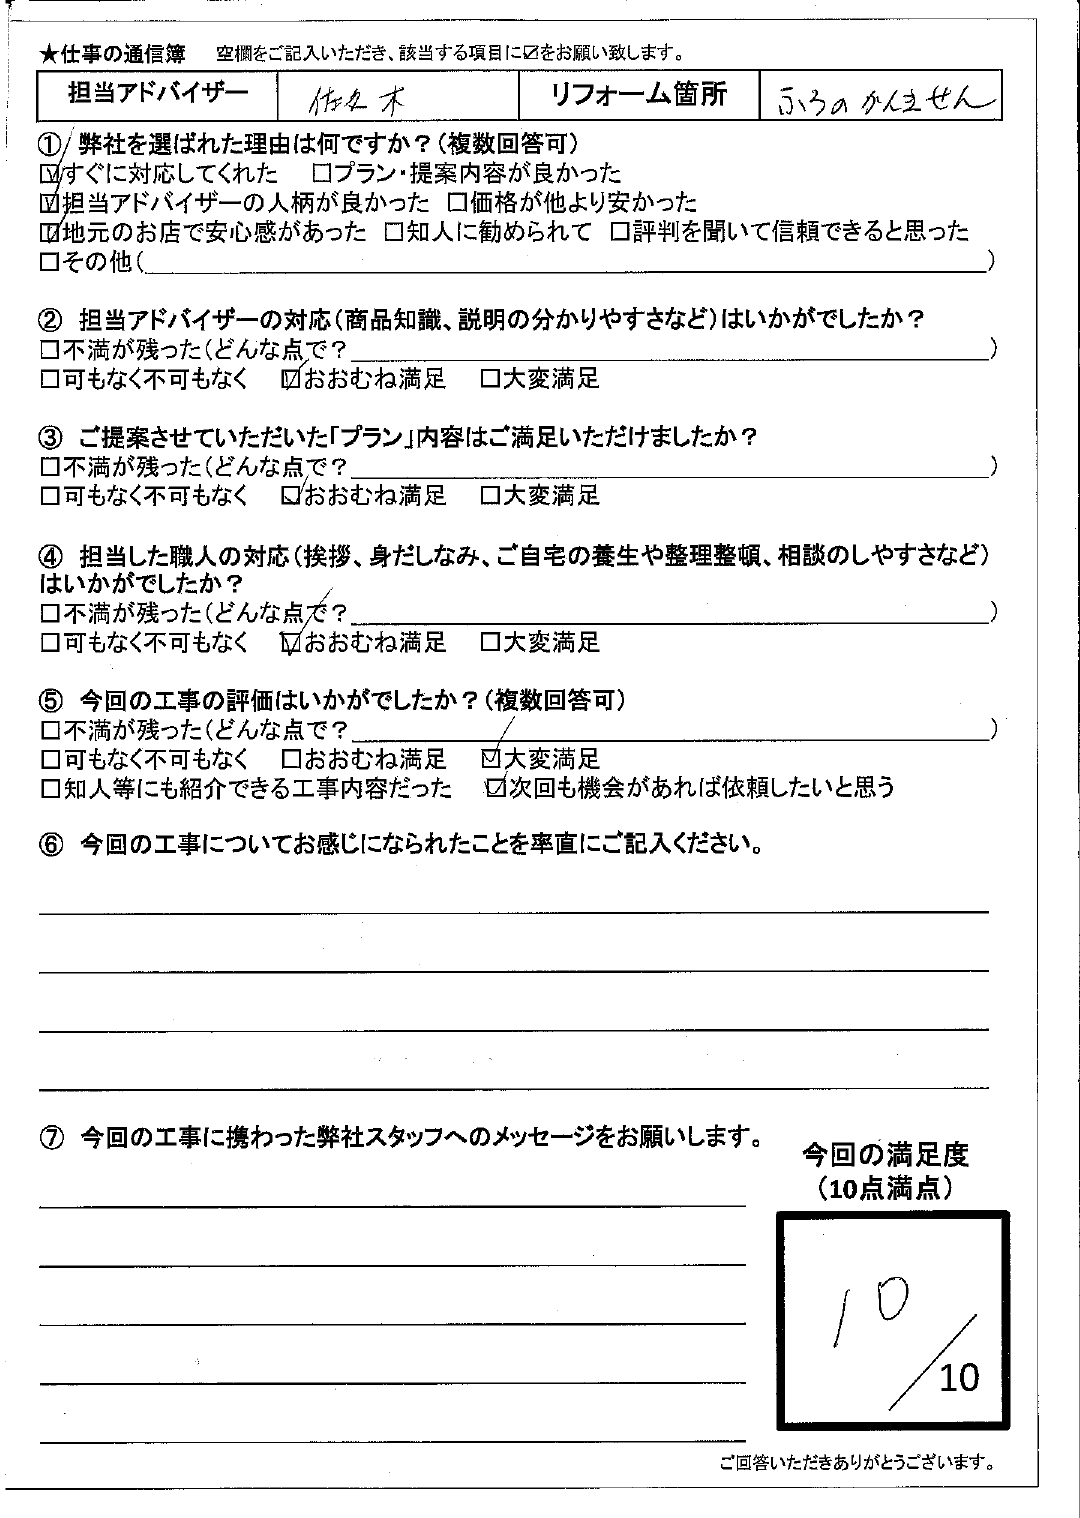 ★仕事の通信簿 空欄をご記入いただき、該当する項目に☑をお願い致します。
担当アドバイザー 佐々木 リフォーム箇所 ふろのかんません
① 弊社を選ばれた理由は何ですか？(複数回答可)
☑すぐに対応してくれた □プラン・提案内容が良かった
☑担当アドバイザーの人柄が良かった □価格が他より安かった
☑地元のお店で安心感があった □知人に勧められて □評判を聞いて信頼できると思った
□その他( )
② 担当アドバイザーの対応(商品知識、説明の分かりやすさなど)はいかがでしたか？
□不満が残った(どんな点で？ )
□可もなく不可もなく ☑おおむね満足 □大変満足
③ ご提案させていただいた「プラン」内容はご満足いただけましたか？
□不満が残った(どんな点で？ )
□可もなく不可もなく ☑おおむね満足 □大変満足
④ 担当した職人の対応(挨拶、身だしなみ、ご自宅の養生や整理整頓、相談のしやすさなど)
はいかがでしたか？
□不満が残った(どんな点で？ )
□可もなく不可もなく ☑おおむね満足 □大変満足
⑤ 今回の工事の評価はいかがでしたか？(複数回答可)
□不満が残った(どんな点で？ )
□可もなく不可もなく □おおむね満足 ☑大変満足
□知人等にも紹介できる工事内容だった ☑次回も機会があれば依頼したいと思う
⑥ 今回の工事についてお感じになられたことを率直にご記入ください。
⑦ 今回の工事に携わった弊社スタッフへのメッセージをお願いします。
今回の満足度
(10点満点)
10/10
ご回答いただきありがとうございます。